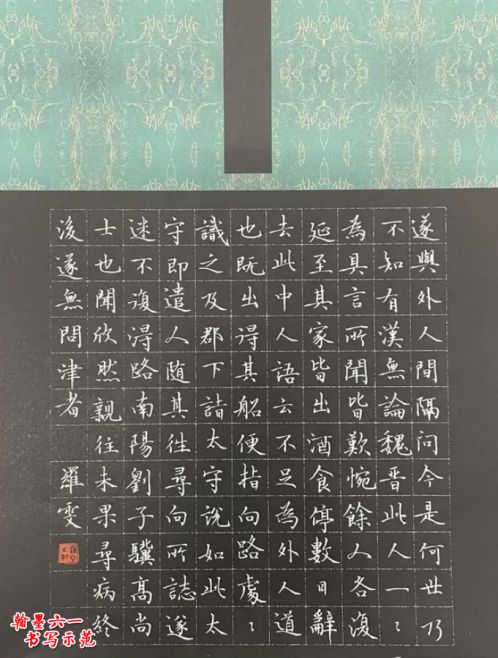 遂與外人間隔問今是何世乃
不知有漢無論魏晉此人一〻
為具言所聞皆歎惋餘人各復
延至其家皆出酒食停數日辭
去此中人語云不足為外人道
也既出得其船便指向路處〻
識之及郡下詣太守說如此太
守即遣人隨其往尋向所誌遂
迷不復得路南陽劉子驥高尚
士也聞欣然親往未果尋病終
後遂無問津者 羅雯
翰墨六一
书写示范